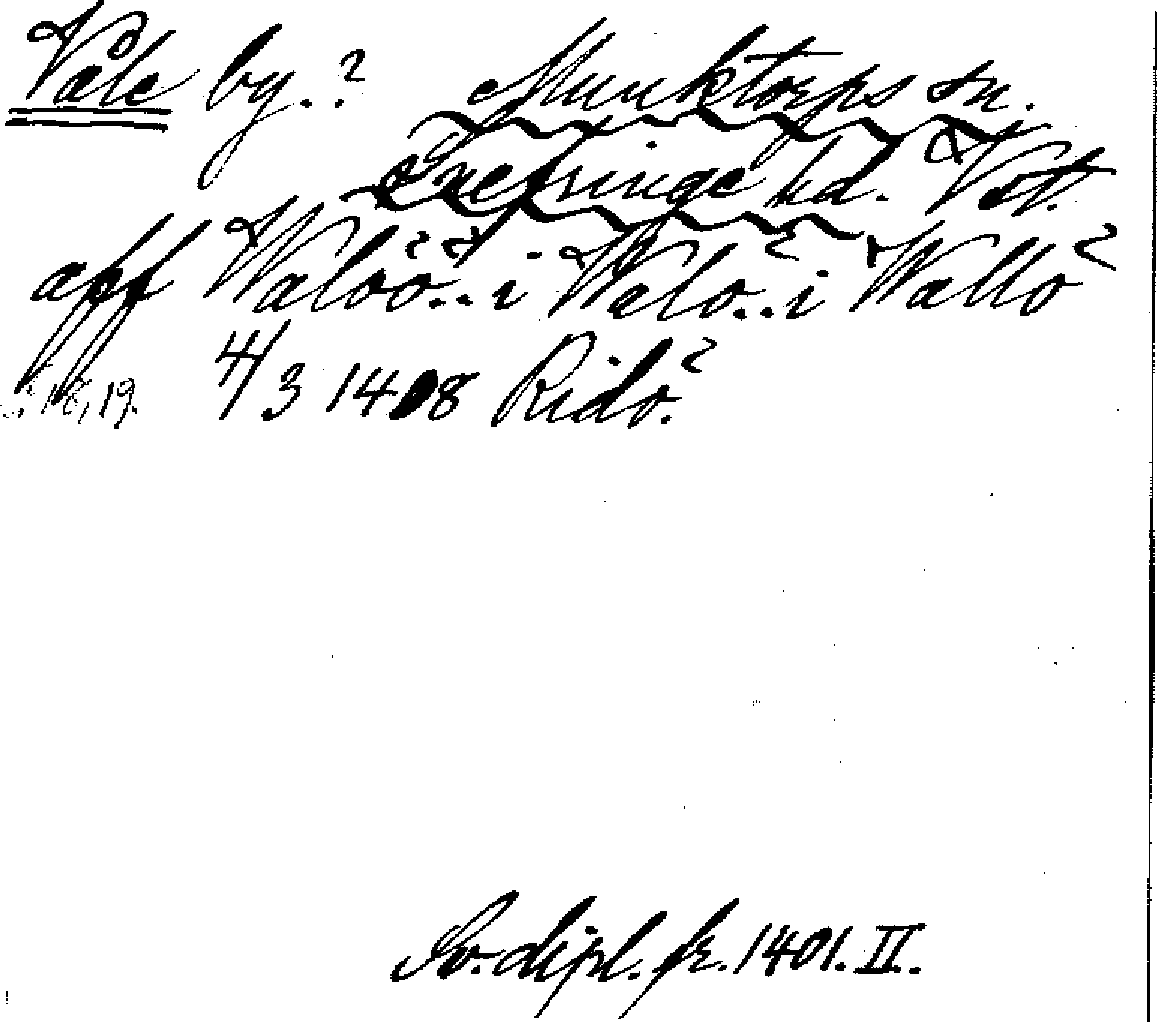 Våle by.? Munktorps sn.
Snefringe hd. Vstm.
aff Waloö.. i Walö.. i Wallö
s. 18, 19. 4/3 1408 Ridö.
Sv. dipl. fr. 1401. II.